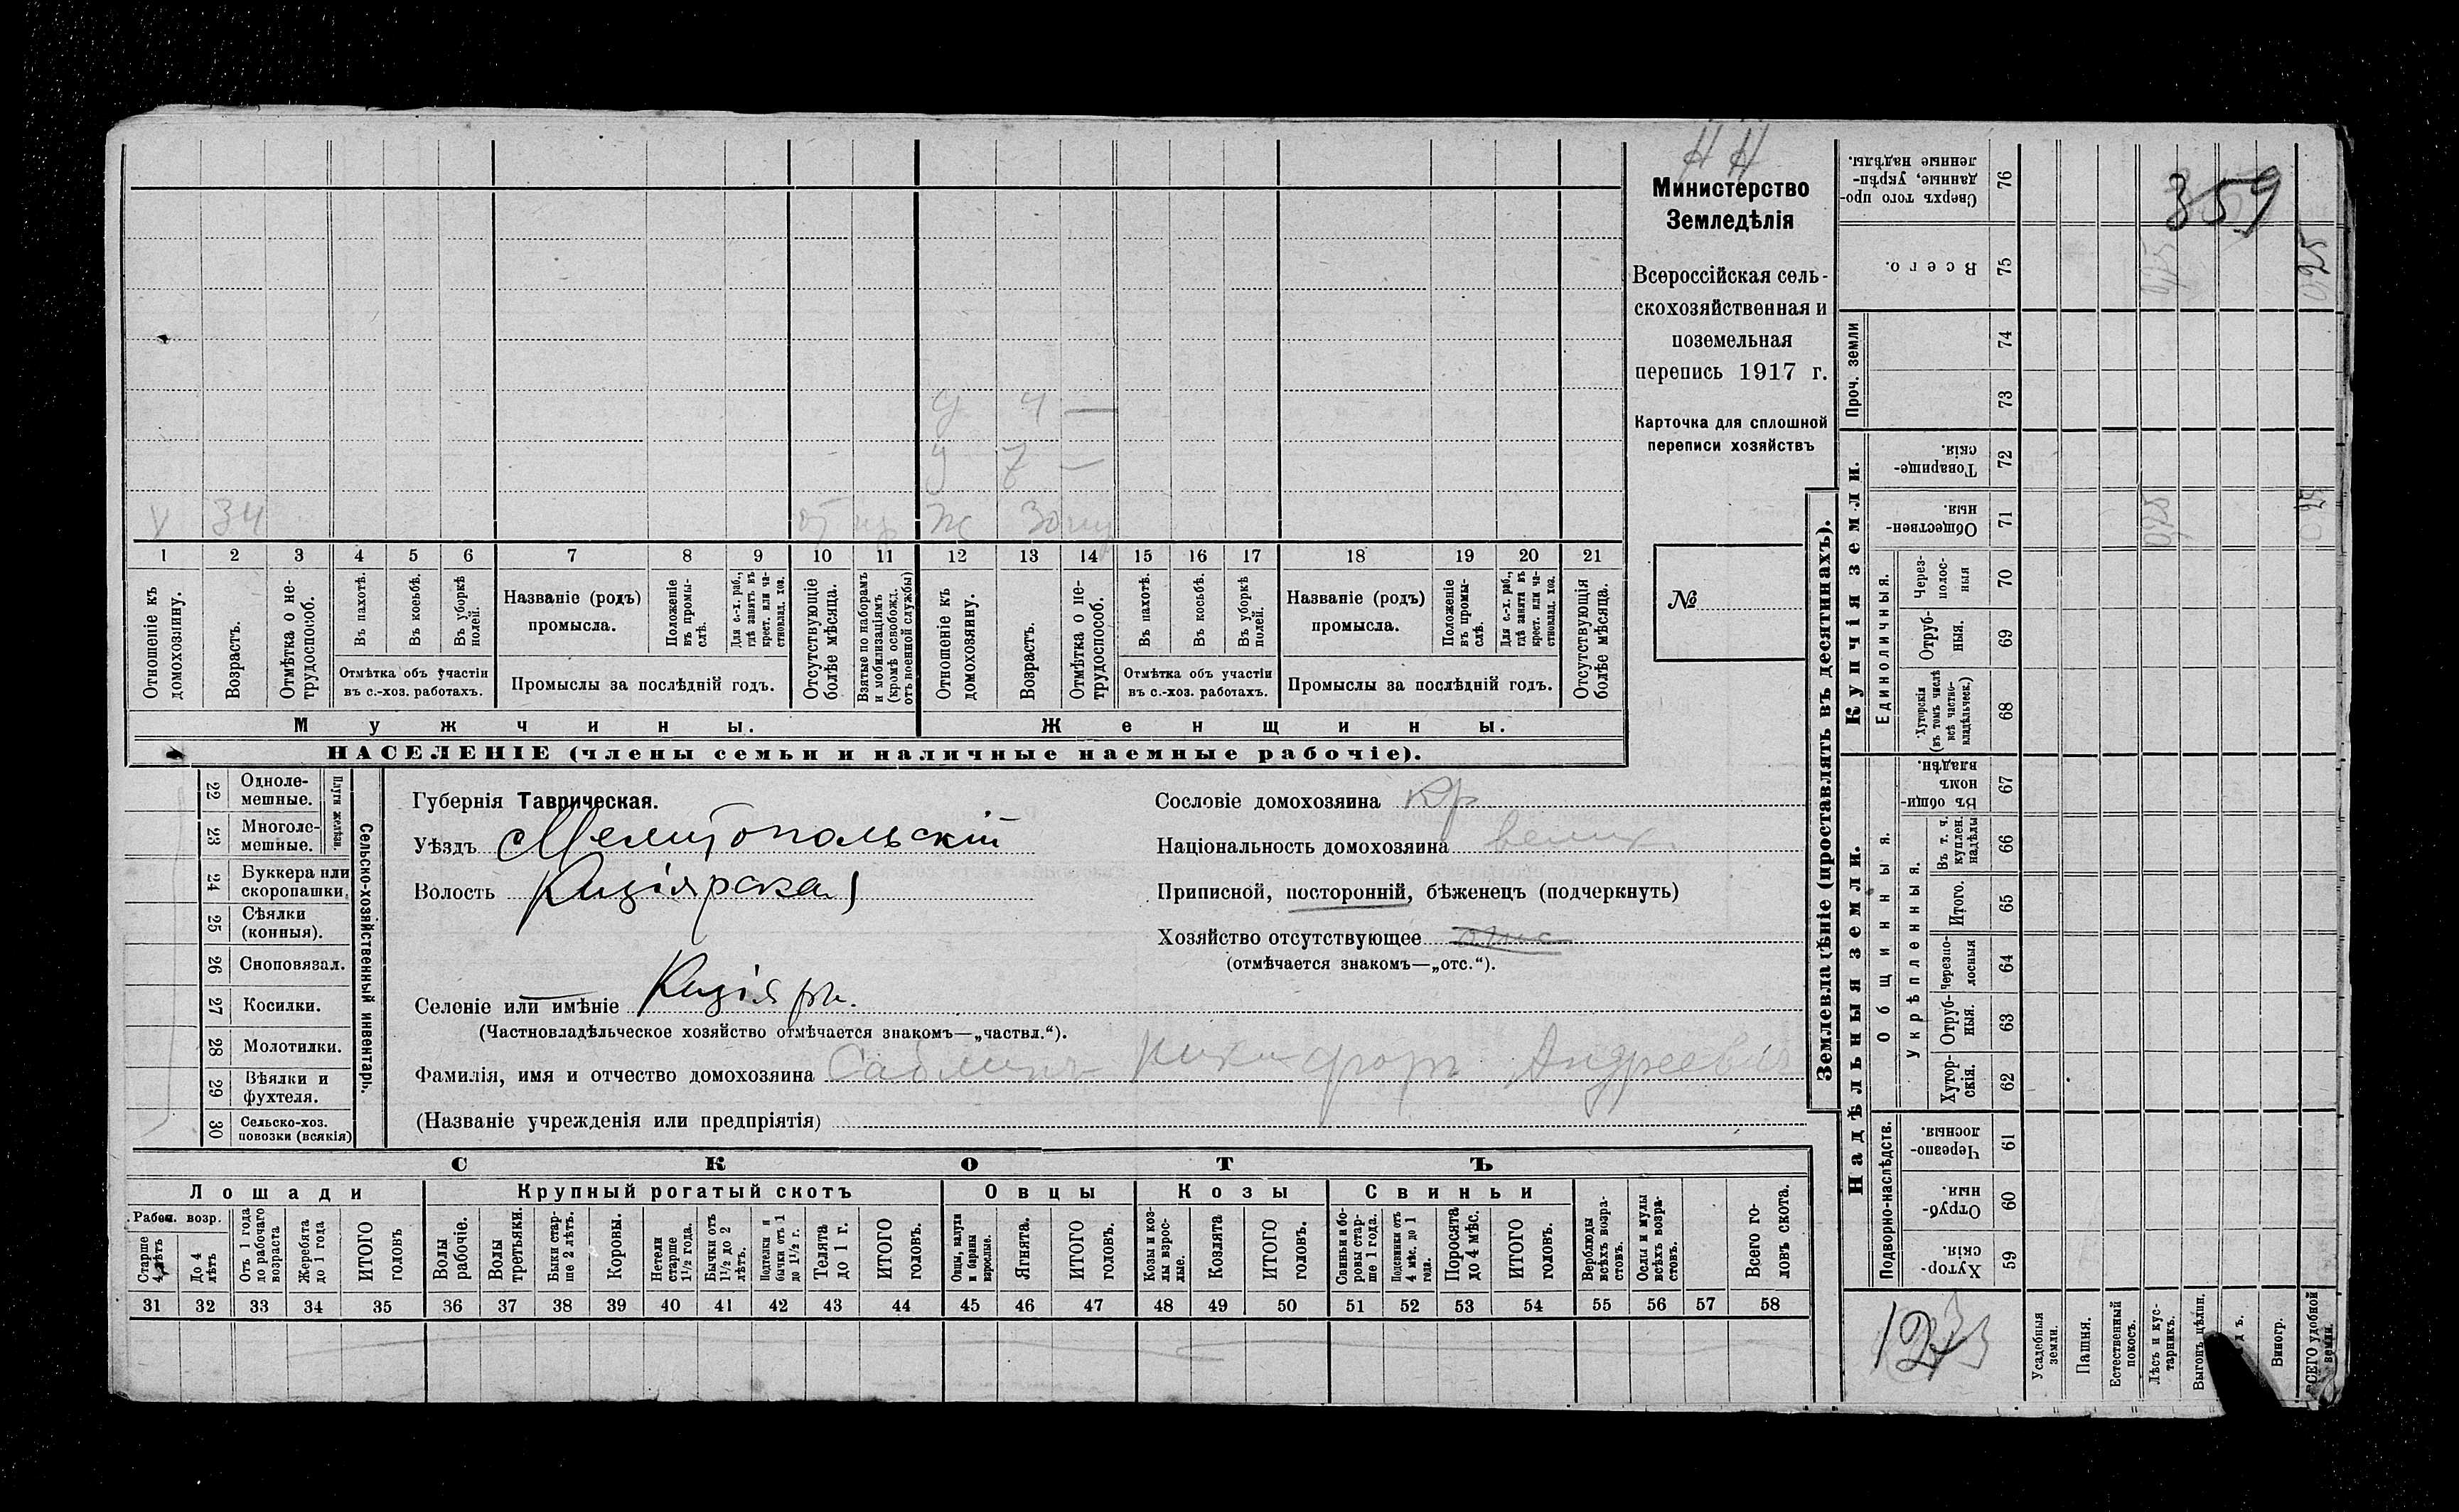 Н Н
Министерство
Земледѣлія
Всероссійская сель-
скохозяйственная и
поземельная
перепись 1917 г.
Карточка для сплошной
переписи хозяйствъ
№
359
д 4 —
д 7 —
34 Ж 30
1 2 3 4 5 6 7 8 9 10 11 12 13 14 15 16 17 18 19 20 21
Отношеніе къ домохозяину.
Возрастъ.
Отмѣтка о не-трудоспособ.
Въ пахотѣ.
Въ косьбѣ.
Въ уборкѣ полей.
Отмѣтка объ участіи
въ с.-хоз. работахъ.
Названіе (родъ)
промысла.
Положеніе въ промы-слѣ.
Для с.-х. раб., гдѣ занятъ въ крест. или ча-стновлад. хоз.
Промыслы за послѣдній годъ.
Отсутствующіе болѣе мѣсяца.
Взятые по наборамъ и мобилизаціямъ (кромѣ освобожд. отъ военной службы)
Отношеніе къ домохозяину.
Возрастъ.
Отмѣтка о не-трудоспособ.
Въ пахотѣ.
Въ косьбѣ.
Въ уборкѣ полей.
Отмѣтка объ участіи
въ с.-хоз. работахъ.
Названіе (родъ)
промысла.
Положеніе въ промы-слѣ.
Для с.-х. раб., гдѣ занята въ крест. или ча-стновлад. хоз.
Промыслы за послѣдній годъ.
Отсутствующія болѣе мѣсяца.
Мужчины.
Женщины.
НАСЕЛЕНІЕ (члены семьи и наличные наемные рабочіе).
Сельско-хозяйственный инвентарь.
Плуги желѣзн.
22 Одноле-мешные.
23 Многоле-мешные.
24 Буккера или скоропашки.
25 Сѣялки (конныя).
26 Сноповязал.
27 Косилки.
28 Молотилки.
29 Вѣялки и фухтеля.
30 Сельско-хоз. повозки (всякія)
Губернія Таврическая.
Уѣздъ Мелитопольскій
Волость Кизіярская
Селеніе или имѣніе Кизіяръ.
(Частновладѣльческое хозяйство отмѣчается знакомъ—„частвл.“).
Фамилія, имя и отчество домохозяина Саблинъ Никифоръ Андреевич
(Названіе учрежденія или предпріятія)
Сословіе домохозяина кр
Національность домохозяина велик.
Приписной, посторонній, бѣженецъ (подчеркнуть)
Хозяйство отсутствующее отс
(отмѣчается знакомъ—„отс.“).
СКОТЪ
Лошади
Крупный рогатый скотъ
Овцы
Козы
Свиньи
Рабоч. возр.
Старше 4 лѣтъ
До 4 лѣтъ
Отъ 1 года до рабочаго возраста
Жеребята до 1 года
ИТОГО головъ
Волы рабочіе.
Волы третьяки.
Быки стар-ше 2 лѣтъ.
Коровы.
Нетели старше 1½ года.
Бычки отъ 1½ до 2 лѣтъ.
Подтелки и бычки отъ 1 до 1½ г.
Телята до 1 г.
ИТОГО головъ.
Овцы, валухи и бараны взрослые.
Ягнята.
ИТОГО головъ.
Козы и коз-лы взрос-лые.
Козлята
ИТОГО головъ.
Свиньи и бо-ровы стар-ше 1 года.
Подсвинки отъ 4 мѣс. до 1 года.
Поросята до 4 мѣс.
ИТОГО головъ.
Верблюды всѣхъ возра-стовъ.
Ослы и мулы всѣхъ возра-стовъ.
Всего го-ловъ скота.
31 32 33 34 35 36 37 38 39 40 41 42 43 44 45 46 47 48 49 50 51 52 53 54 55 56 57 58
Землевладѣніе (проставлять въ десятинахъ).
Надѣльныя земли.
Купчія земли.
Проч. земли
Подворно-наслѣдств.
Общинныя.
Укрѣпленныя.
Единоличныя.
76 Сверхъ того про-данные, укрѣп-ленные надѣлы.
75 Всего.
74
73
72 Товарище-скія.
71 Обществен-ныя.
70 Через-полос-ныя
69 Отруб-ныя.
68 Хуторскія (въ томъ числѣ всѣ частно-владѣльческ.)
67 Въ общи-номъ владѣн.
66 Въ т. ч. куплен. надѣлы
65 Итого.
64 Черезпо-лосныя
63 Отруб-ныя.
62 Хутор-скія.
61 Черезпо-лосныя.
60 Отруб-ныя.
59 Хутор-скія.
Усадебныя земли.
Пашня.
Естественный покосъ.
Лѣсъ и кус-тарникъ.
Выгонъ, цѣлин.
Виногр.
ВСЕГО удобной земли.
0,25
0,25